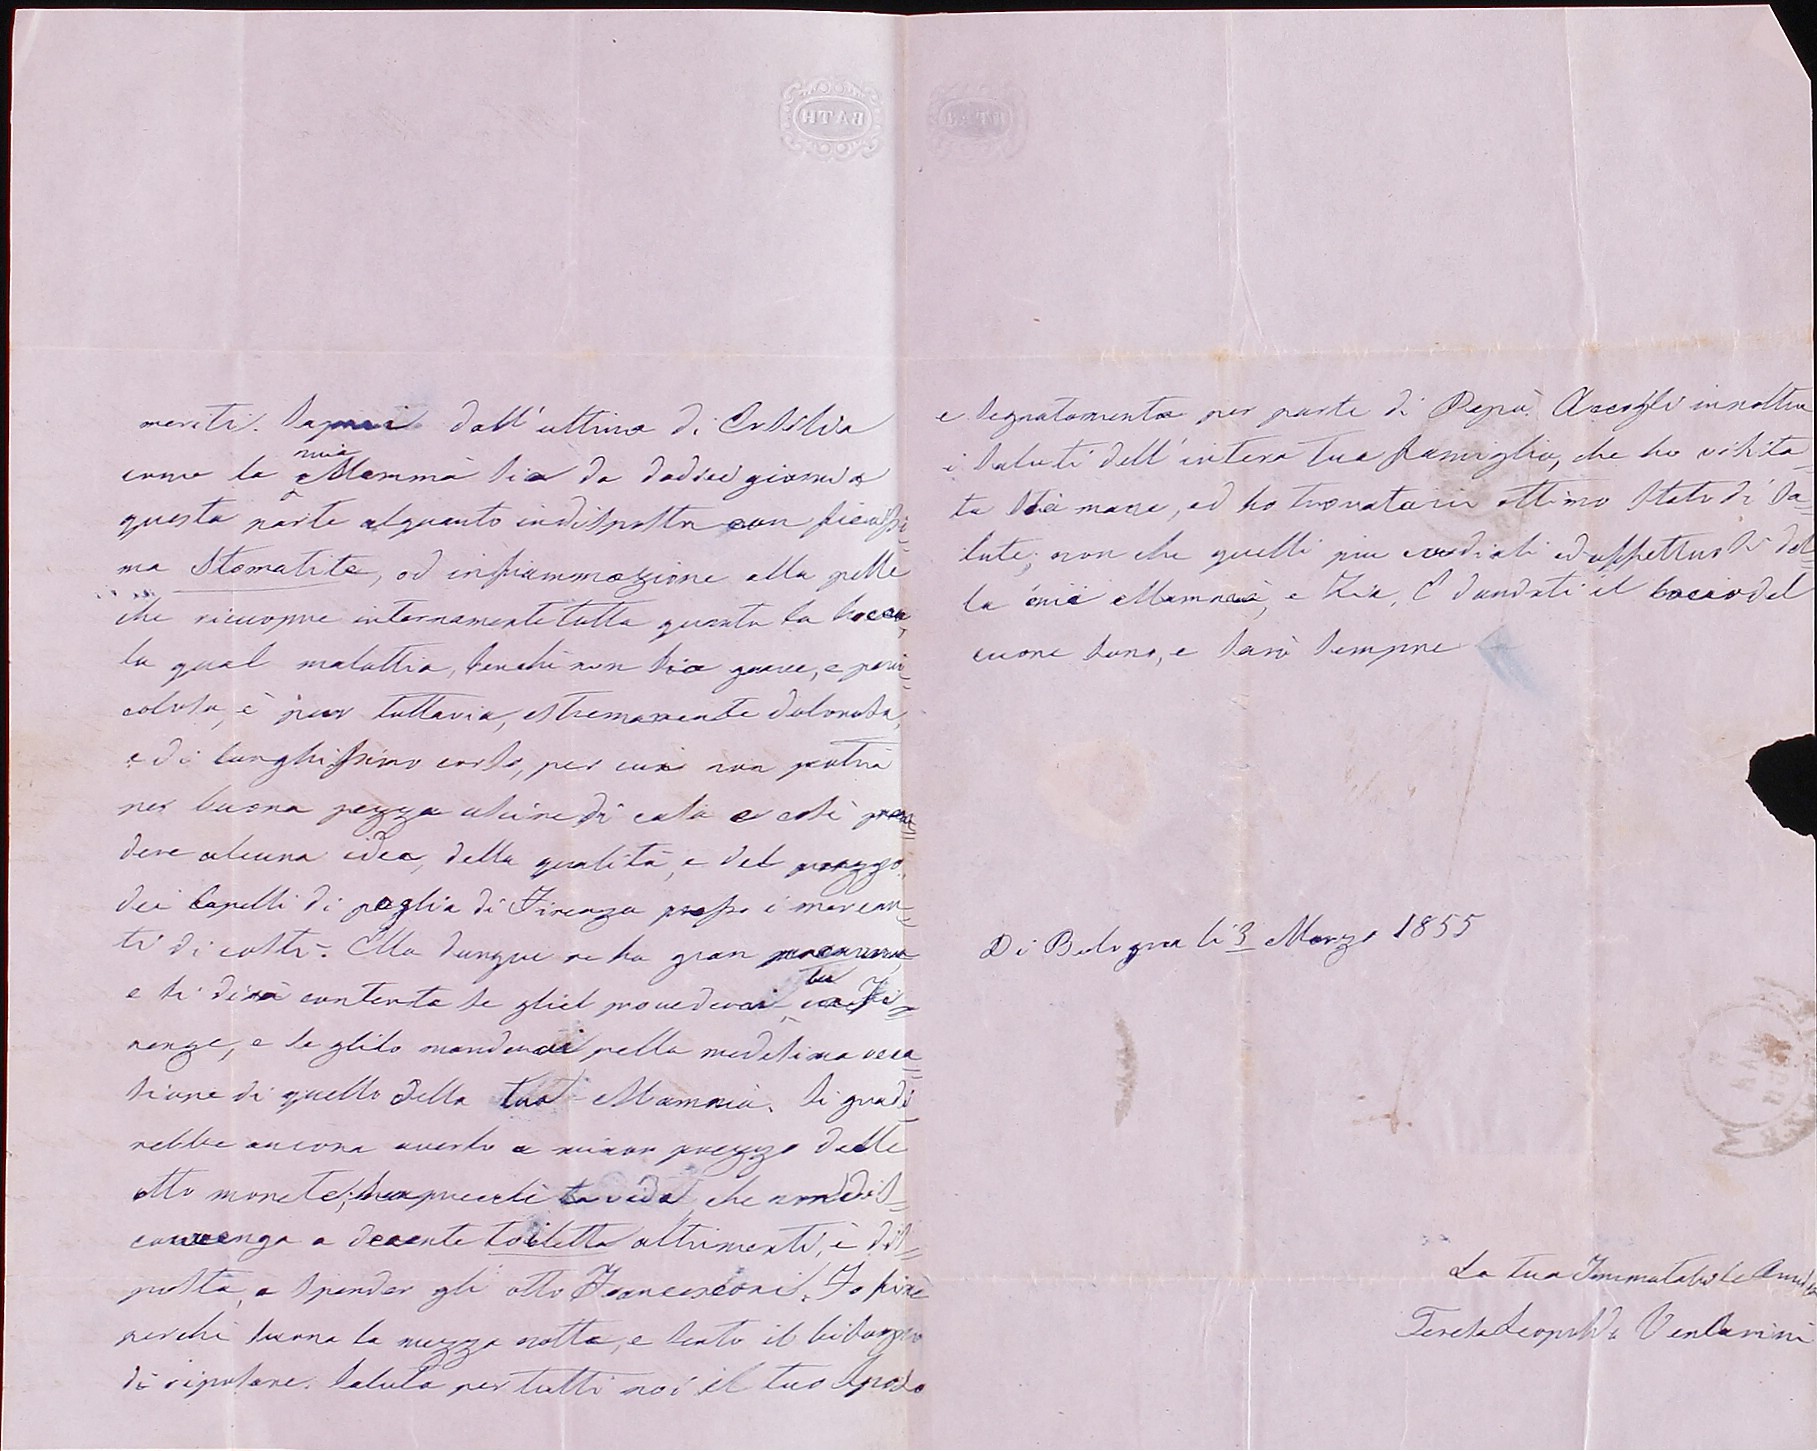 BATH
meriti. Saprai dall' ultima di Ersilia
come la mia Mammà sia da dodici giorni a
questa parte alquanto indisposta con fierissi=
ma Stomatite, od infiammazione alla pelle
che riccopre internamente tutta quanta la bocca,
la qual malattia, benchè non sia grave, e peri=
colosa, è pur tuttavia, estremamente dolorosa,
e di lunghissimo corso, per cui non potrà
per buona pezza uscire di casa e così pren=
dere alcuna idea, della qualità, e del prezzo
dei Capelli di paglia di Firenze presso i mercan=
ti di costì. Ella dunque ne ha gran premura,
e si dirà contenta se gliel provederai tu a Fi=
renze, e se glilo manderai nella medesima occa=
sione di quello della tua Mammà. Si gradi=
rebbe ancora averlo a minor prezzo delle
otto monete; che non dis=
convenga a decente toiletta altrimenti, è dis=
posta, a spender gli otto Francesconi. Io finirò
perchè suona la mezza notte, e sento il bisogno
di riposare. Saluta per tutti noi il tuo sposo
e segnatamente per parte di Pepù. Accogli innoltre
i saluti dell' intera tua famiglia, che ho visita=
ta stà mane, ed ho trovata in ottimo stato di sa=
lute; non che quelli più cordiali ed affettuosi del=
la mia Mammà, e Zia. E dandoti il bacio del
cuore sono, e sarò sempre
Di Bologna li 3 Marzo 1855
La tua Immutabile Amica
Teresa Leopolda Venturini